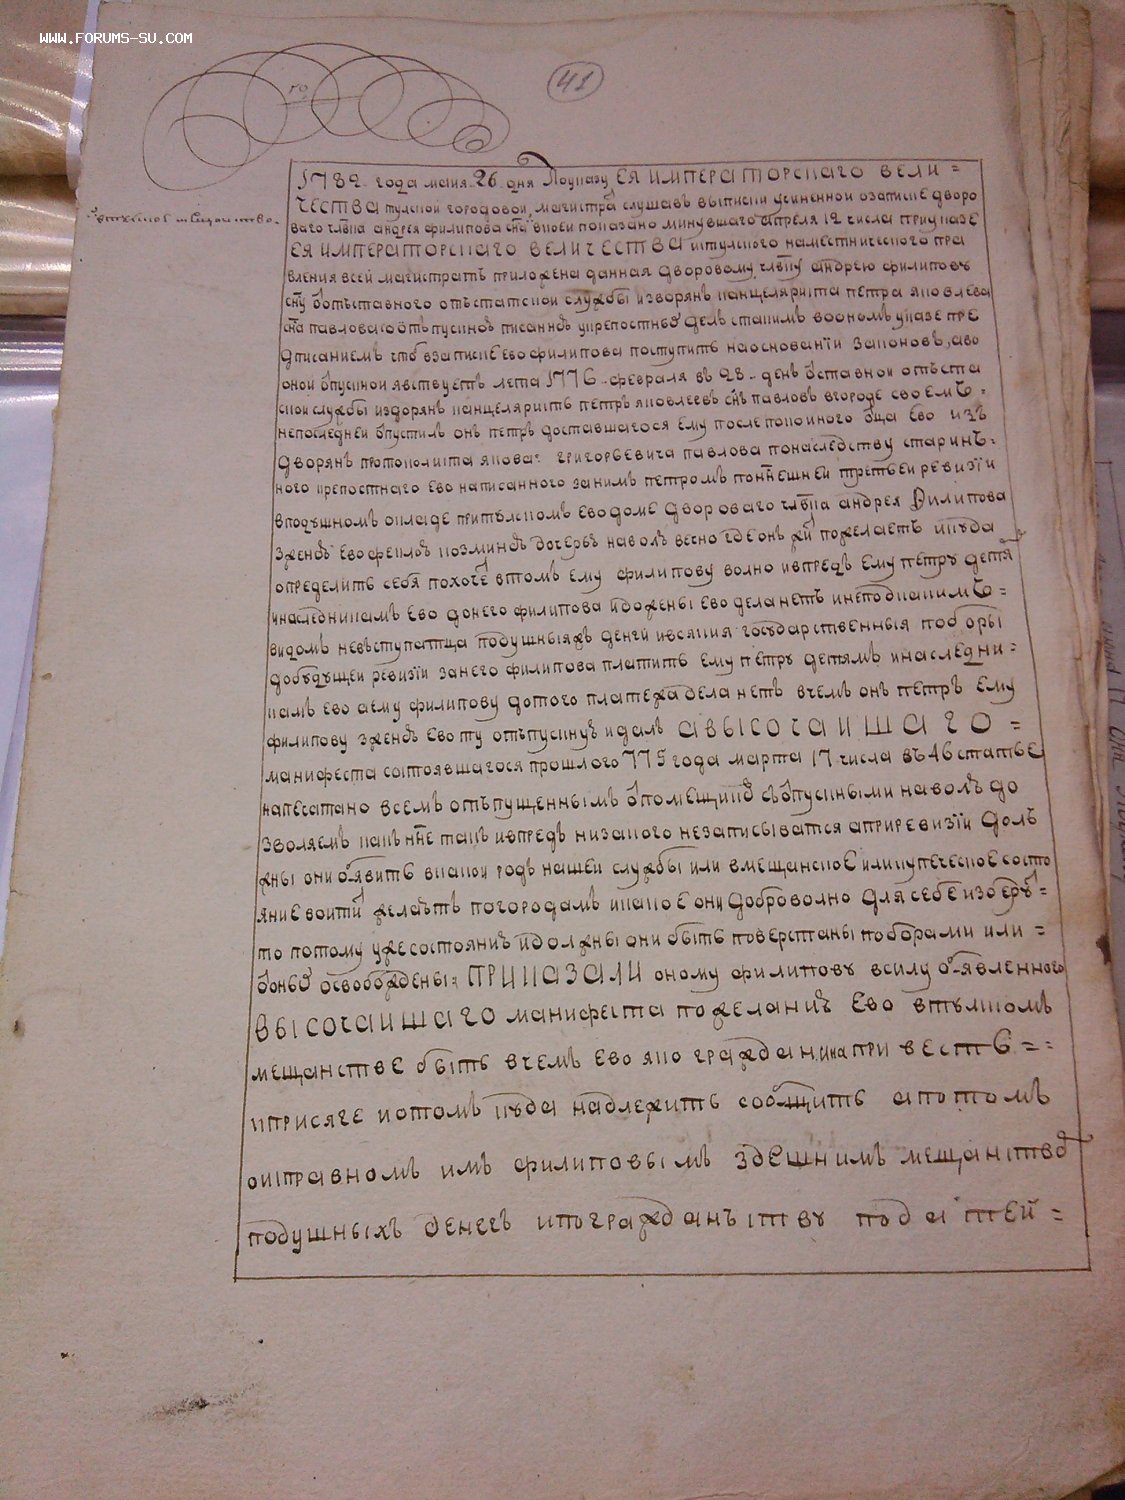 WWW.FORUMS-SU.COM
го
41
1782 года маия 26 дня Поуказу ЕЯ ИМПЕРАТОРСКАГО ВЕЛИ =
ЧЕСТВА тулской городовой магистра слушавъ выписки учиненной озаписке дворо
ваго члвка андрея филипова сна вкоей показано минувшаго апреля 12 числа приуказе
ЕЯ ИМПЕРАТОРСКАГО ВЕЛИЧЕСТВА истулского наместнического пра
вления всей магистратъ приложена данная дворовому члвку андрею филипову
сну отъставного отъстатской службы издворянъ канцеляриста петра яковлева
сна павлова отъпускноъ писанноъ укрепостныъ делъ скакимъ воономъ указе пре
дписаниемъ чтоб взаписке ево филипова поступить наосновании законовъ, аво
оной отпускной явствуетъ лета 1776 февраля въ 28 день отставной отъста
ской службы издорянъ канцеляристъ петръ яковлевъ снъ павловъ вгороде своемъ =
непоследней отпустилъ онъ петръ доставшагося ему послепокойного отца ево изъ
дворянъ протоколиста якова григорьевича павлова понаследству старинъ =
ного крепостнаго ево написанного занимъ петромъ понынешней третьей ревизии
вподушномъ окладе притулскомъ ево доме дворового члвка андрея Филипова
зженоъ ево феклоъ козминоъ дочерью наволю вечно где онъ жить пожелаетъ икуда
определить себя похочетъ втомъ ему филипову волно ивпредь ему петру детямъ
инаследникамъ ево донего филипова идожены ево дела нетъ инеподкакимъ =
видомъ невступатца подушныяхъ денги ивсякия государственныя поборы
добудущей ревизии занего филипова платить ему петру детямъ инаследни =
камъ ево аему филипову дотого платежа дела нетъ вчемъ онъ петръ ему
филипову зженоъ ево ту отъпускную идалъ АВЫСОЧАИШАГО =
манифеста состоявшагося прошлого 775 года марта 17 числа въ 46 статье
напечатано всемъ отъпущеннымъ отпомещиковъ съотпускными наволю до
зволяемъ какъ нне такъ ивпредь низакого незаписыватся априревизии долъ
жны они объявить вкакой родъ нашей службы или вмещанское иликупеческое состо
яние войтить желаютъ погородамъ икакое они доброволно длясебе изберутъ =
то потому уже состоянию идолжны они быть поверстаны поборами или =
онаго освобождены: ПРИКАЗАЛИ оному филипову всилу объявленного
ВЫСОЧАИШАГО манифеста пожеланию Ево втулском
мещанстве быть вчемъ ево яко гражданина привесть = =
кприсяге иотомъ куда надлежить сообщить апотомъ
оисправномъ имъ филиповымъ здешнимъ мещанством
подушныхъ денегъ ипогражданъству податей =